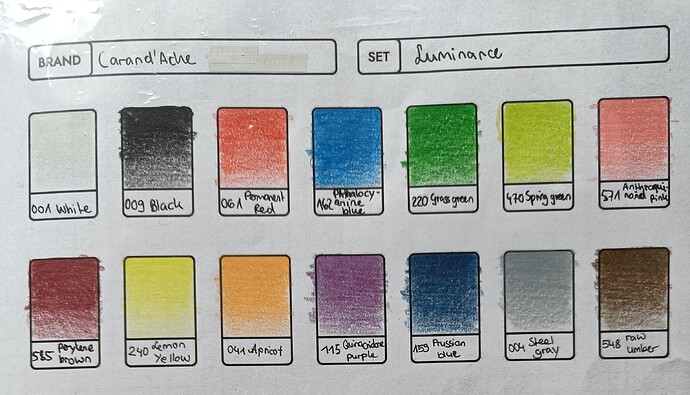 BRAND Carand'Ache
SET Luminance
001 White
009 Black
061 Permanent
Red
162 Phthalocy-
anine
blue
220 Grass green
470 Spring green
571 Anthraqui-
noid
pink
585 Perylene
brown
240 Lemon
Yellow
041 Apricot
115 Quinacridone
purple
159 Prussian
blue
004 Steel
gray
548 raw
umber